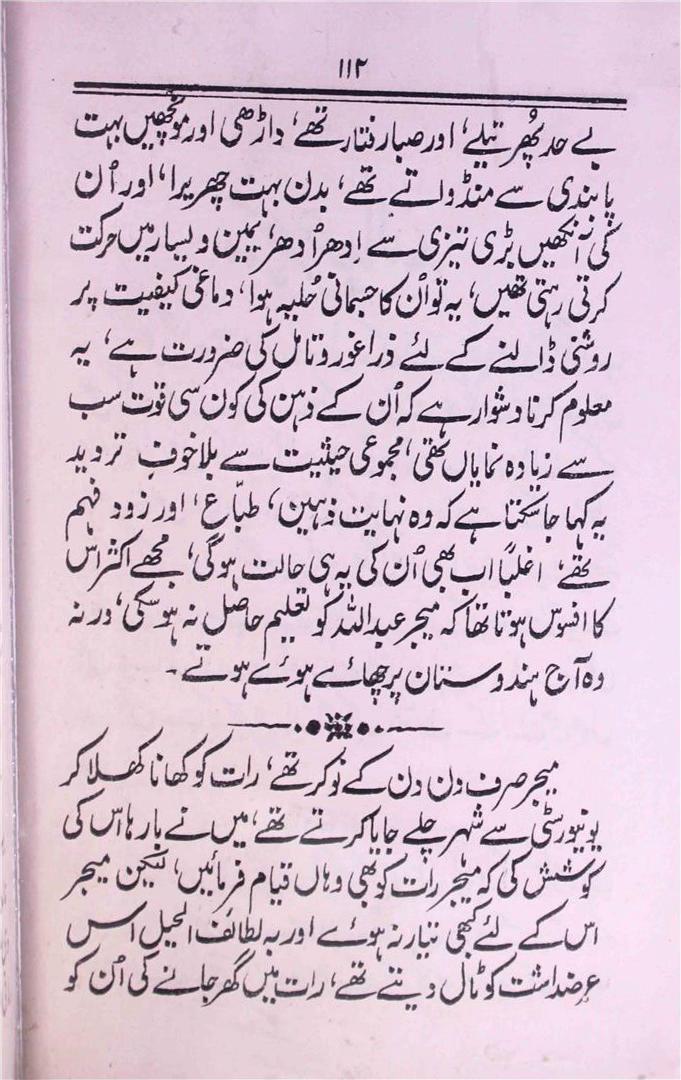 ۱۱۲
بے حد پُھرتیلے، اور صبا رفتار تھے، داڑھی اور مونچھیں بہت
پابندی سے منڈواتے تھے، بدن بہت چھریرا، اور اُن
کی آنکھیں بڑی تیزی سے اِدھر اُدھر، یمین و یسار میں حرکت
کرتی رہتی تھیں، یہ تو اُن کا جسمانی حُلیہ ہوا، دماغی کیفیت پر
روشنی ڈالنے کے لئے ذرا غور و تامل کی ضرورت ہے، یہ
معلوم کرنا دشوار ہے کہ اُن کے ذہن کی کون سی قوت سب
سے زیادہ نمایاں تھی، مجموعی حیثیت سے بلا خوفِ تردید
یہ کہا جاسکتا ہے کہ وہ نہایت ذہین، طبّاع، اور زود فہم
تھے، اغلباً اب بھی اُن کی یہی حالت ہوگی، مجھے اکثر اس
کا افسوس ہوتا تھا کہ میجر عبداللہ کو تعلیم حاصل نہ ہوسکی، ورنہ
وہ آج ہندوستان پر چھائے ہوئے ہوتے۔
میجر صرف دن دن کے نوکر تھے، رات کو کھانا کھلا کر
یونیورسٹی سے شہر چلے جایا کرتے تھے، میں نے بارہا اس کی
کوشش کی کہ میجر رات کو بھی وہاں قیام فرمائیں، لیکن میجر
اس کے لئے کبھی تیار نہ ہوئے اور بہ لطائف الحیل اس
عرضداشت کو ٹال دیتے تھے، رات میں گھر جانے کی اُن کو